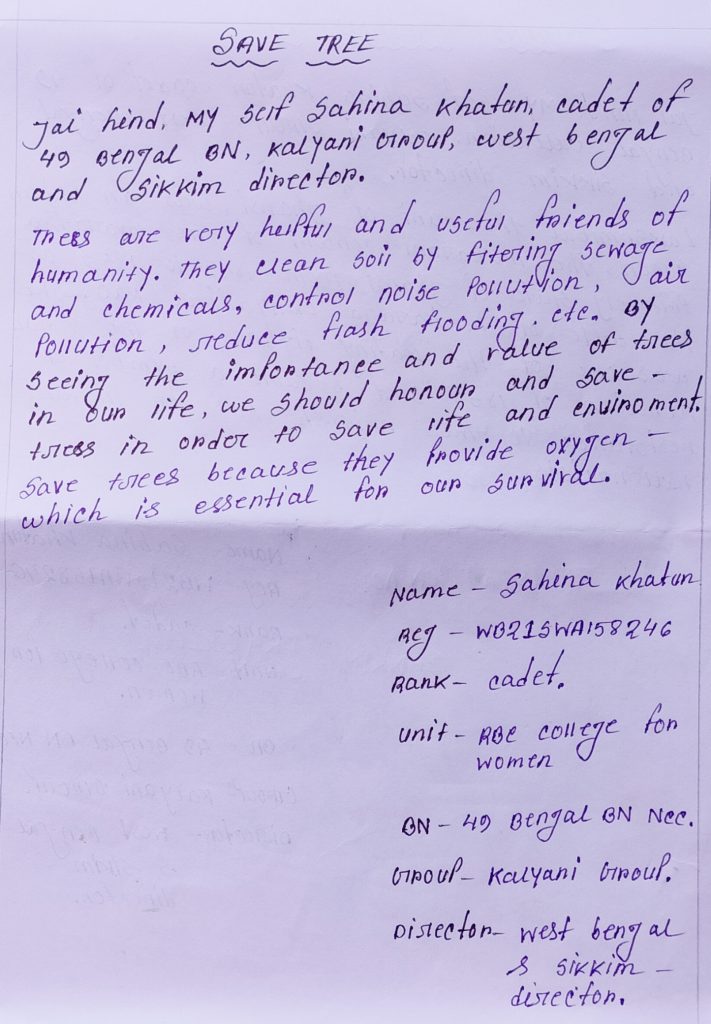 SAVE TREE
Jai hind, My self Sahina Khatun, cadet of
49 Bengal BN, Kalyani Group, west bengal
and Sikkim director.
Thess are very helpful and useful friends of
humanity. They clean soil by fitering sewage
and chemicals, control noise Pollution, air
Pollution, reduce flash flooding. etc. By
Seeing the importance and value of trees
in our life, we should honour and save -
trees in order to save life and enviroment.
Save trees because they Provide oxygen -
which is essential for our survival.
Name - Sahina Khatun
Reg - WB21SWA158246
Rank - cadet.
Unit - RBC college for
women
BN - 49 Bengal BN Ncc.
Group - Kalyani Group.
Director - West bengal
& Sikkim -
director.